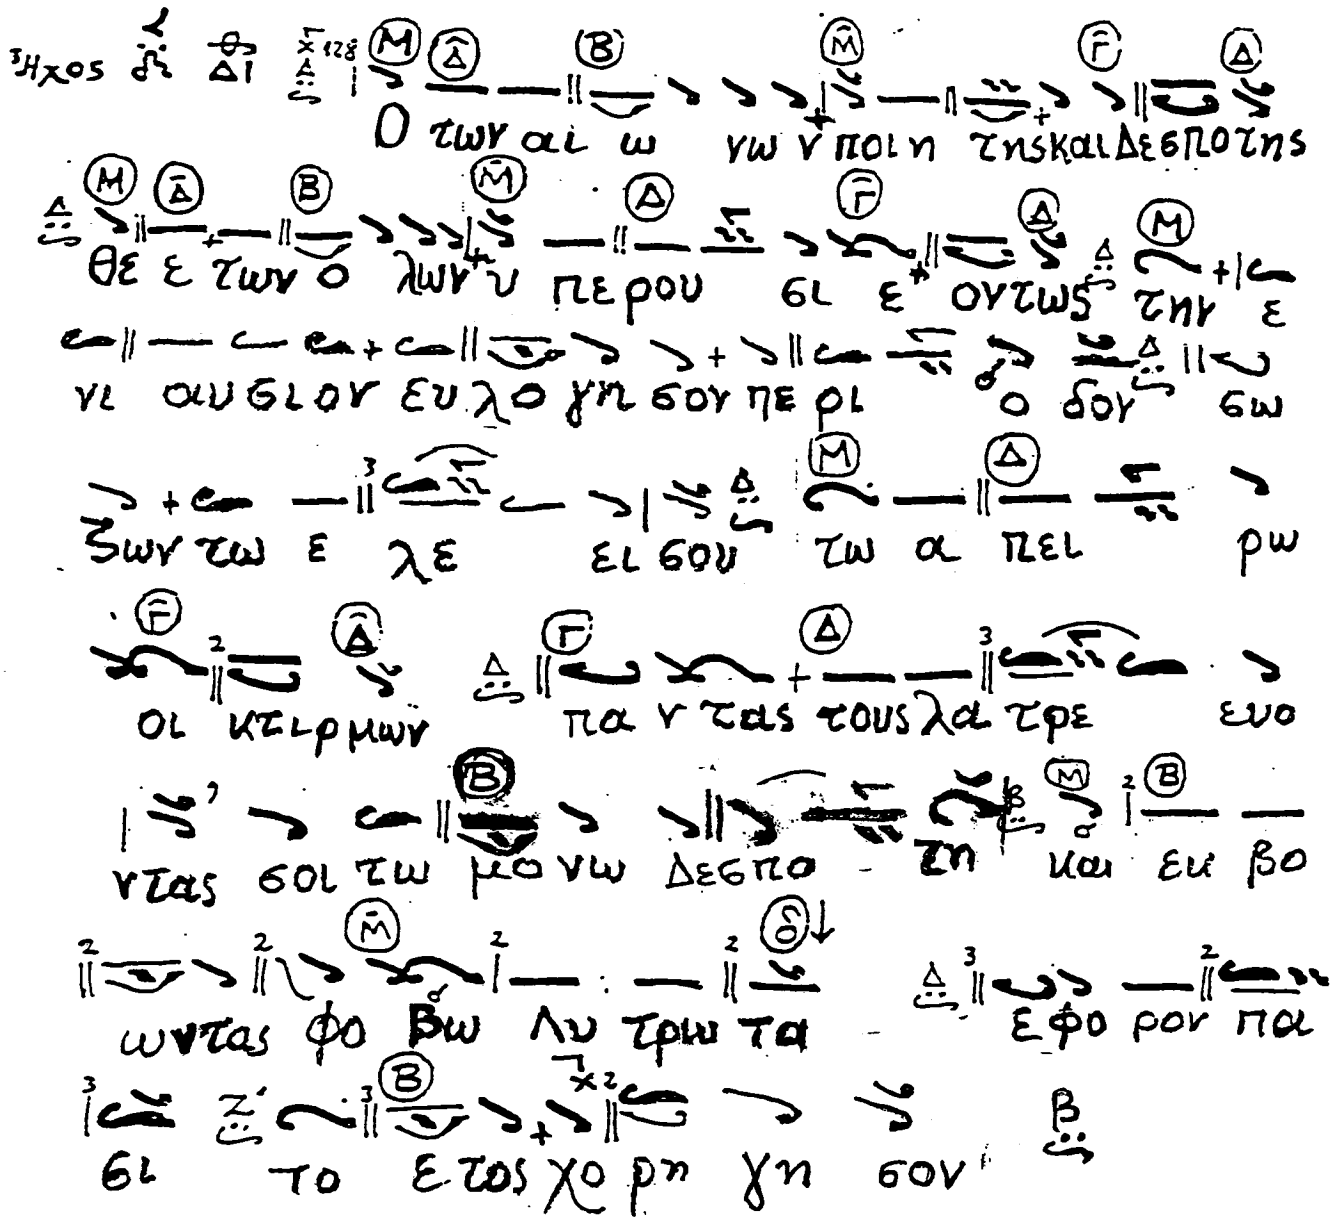 Ἦχος Δι χ 128
Ο των αι ω νω ν ποι η της και Δεσπο της
θε ε των ο λων υ περου σι ε οντως την ε
νι αυσιον ευ λο γη σον πε ρι ο δον σω
ζων τω ε λε ει σου τω α πει ρω
οι κτιρμων πα ν τας τους λα τρε ευο
ντας σοι τω μο νω Δεσπο τη και εκ βο
ωντας φο βω Λυ τρω τα ε φο ρον πα
σι το ε τος χο ρη γη σον